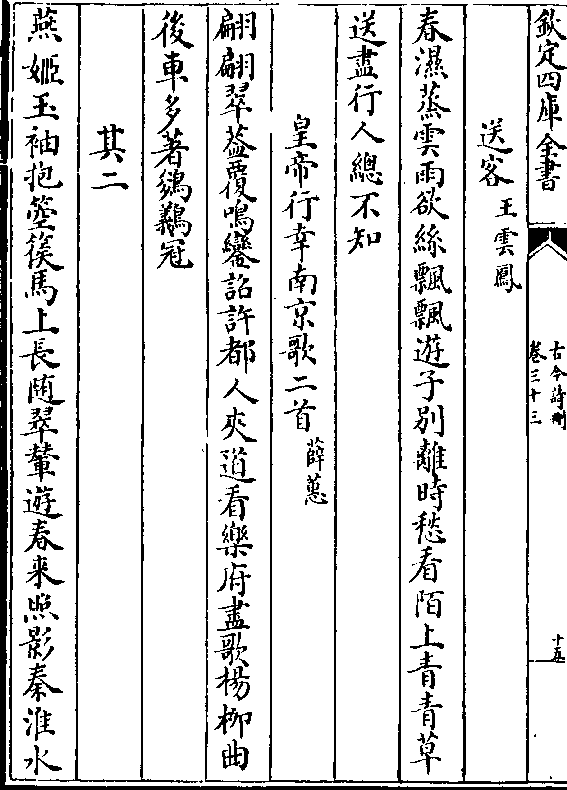 欽定四庫全書
古今詩刪
卷三十三
十五
送客王雲鳳
春濕蒸雲雨欲絲飄飄遊子别離時愁看陌上青青草
送盡行人總不知
皇帝行幸南京歌二首薛蕙
翩翩翠葢覆鳴鑾詔許都人夾道看樂府盡歌楊柳曲
後車多著鵕鸃冠
其二
燕姬玉袖抱箜篌馬上長随翠輦遊春来照影秦淮水